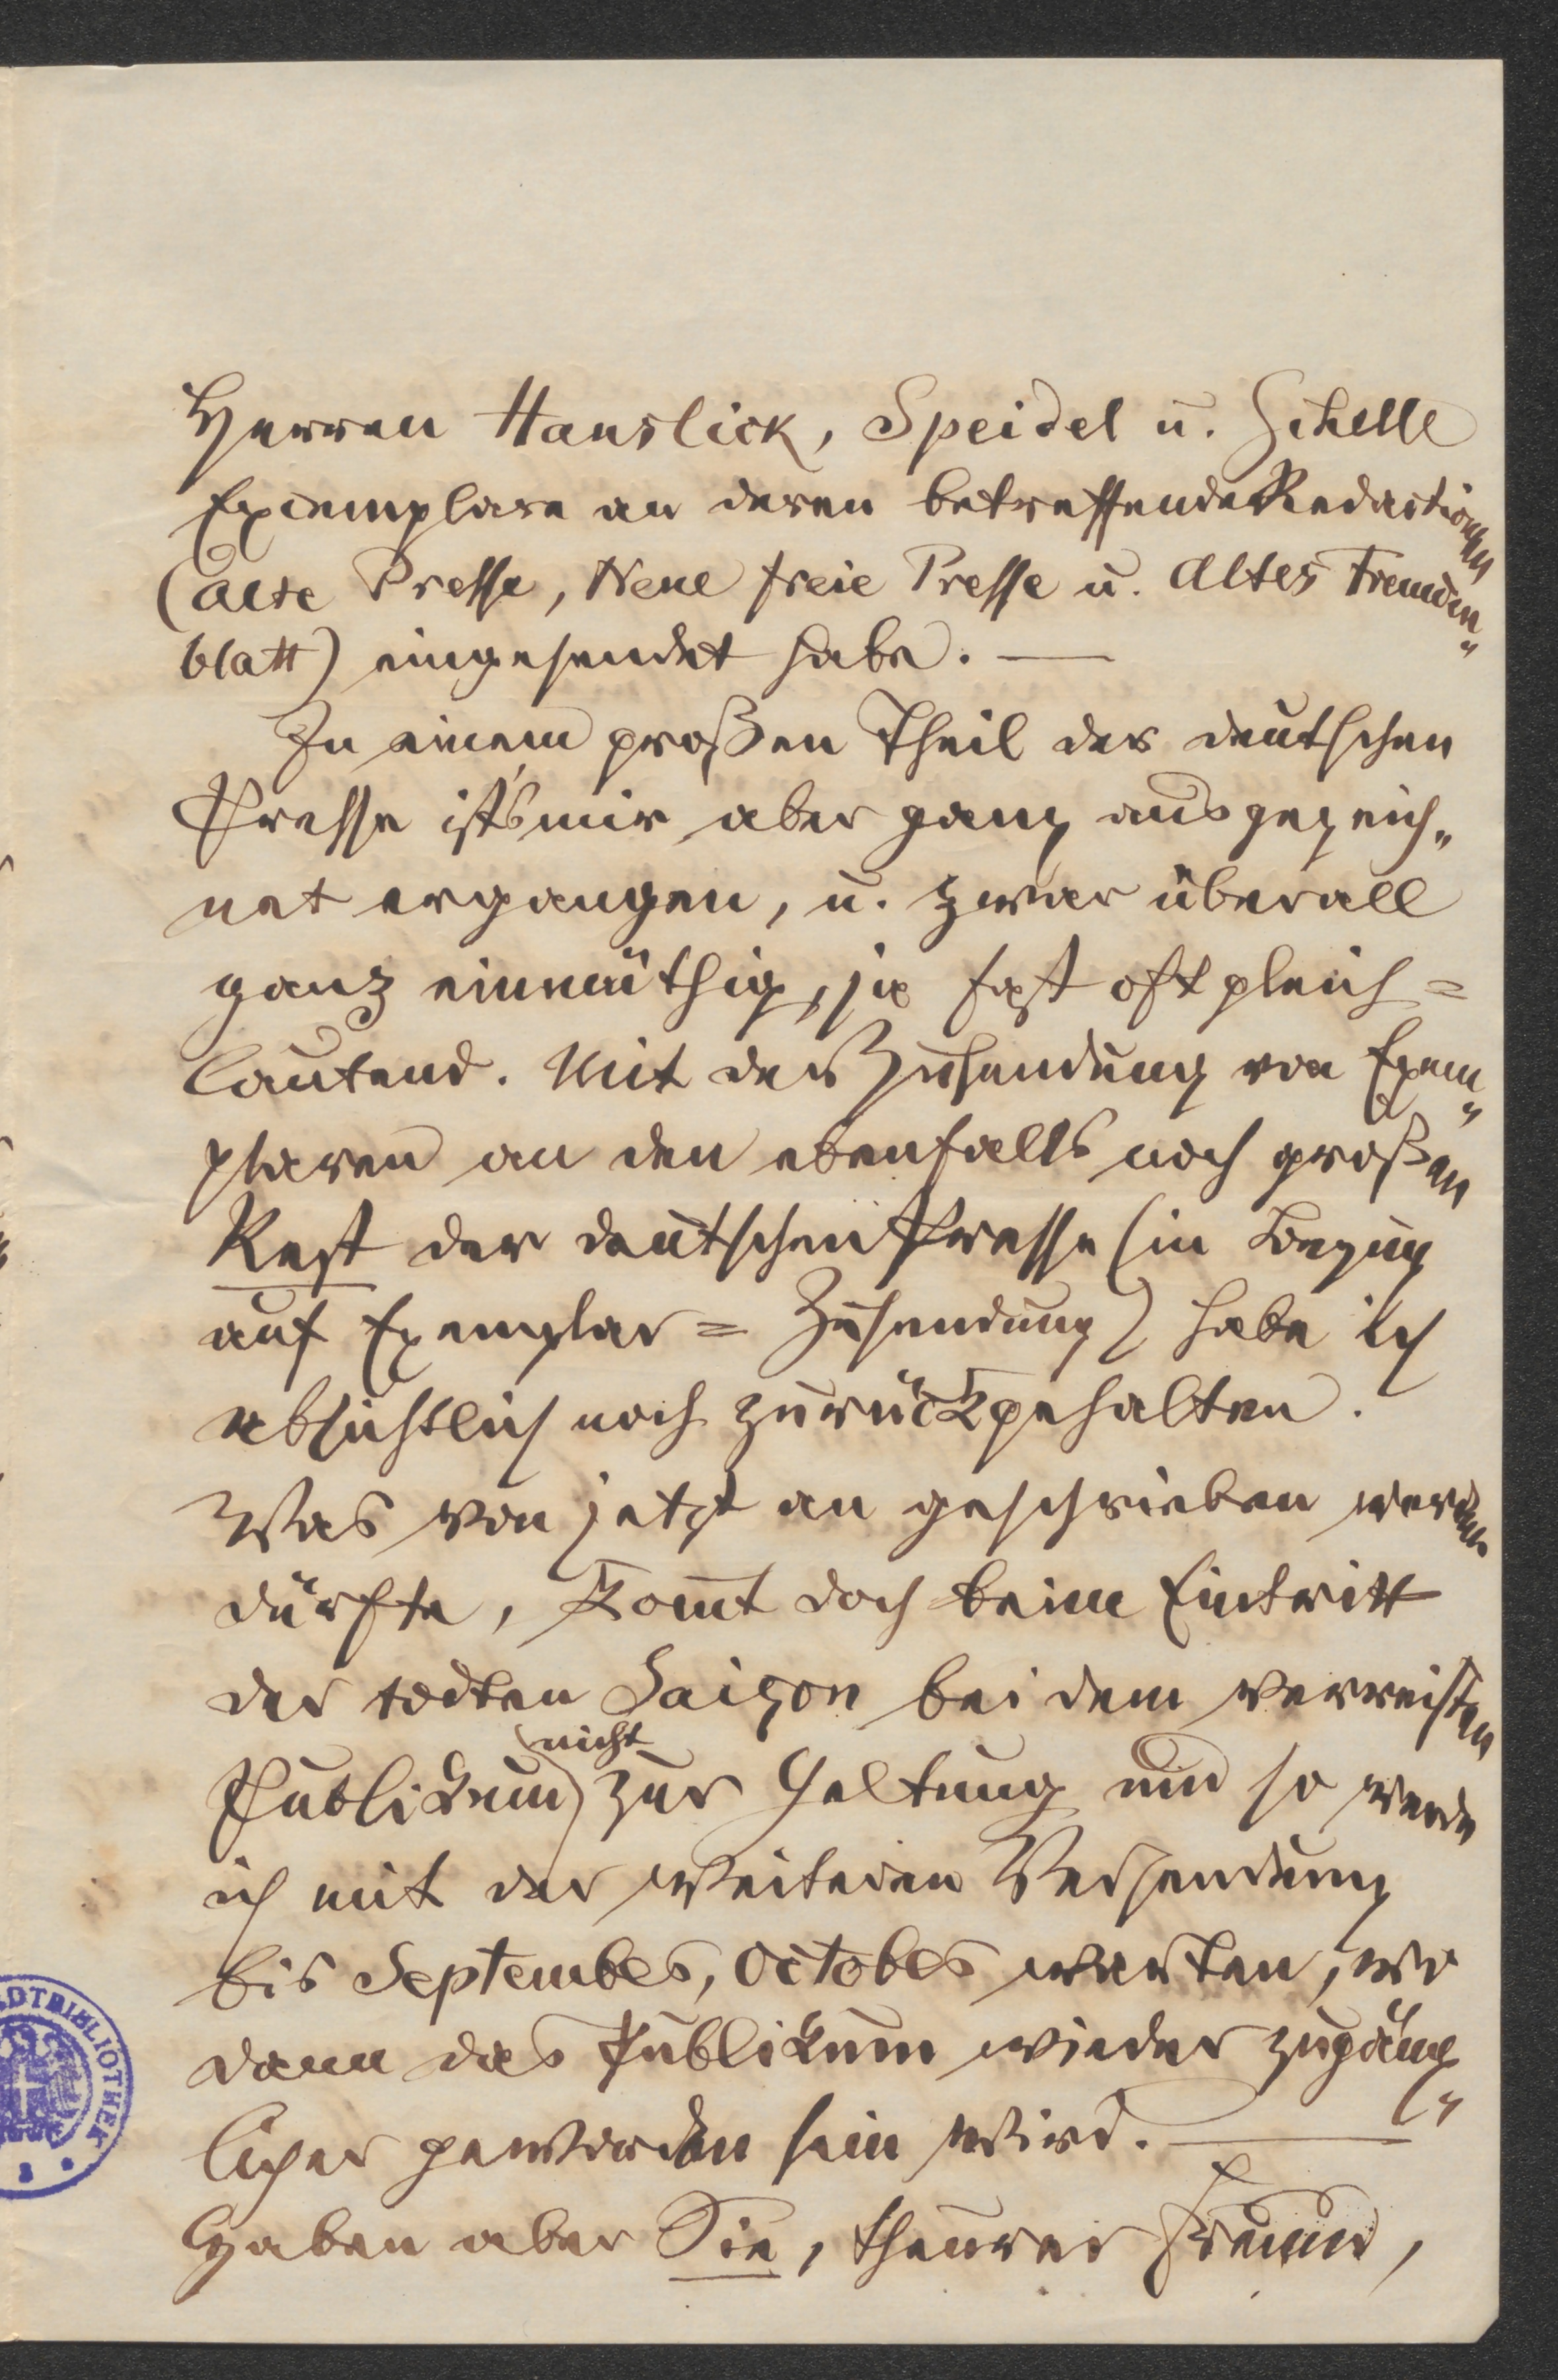 Herren Hanslick, Speidel u. Schelle
Exemplare an deren betreffende Redactionen
(Alte Presse, Neue freie Presse u. Altes Fremden„
blatt) eingesendet habe. —
In einem großen Theil der deutschen
Presse ist's mir aber ganz ausgezeich„
net ergangen, u. zwar überall
ganz einmüthig, ja fast oft gleich=
lautend. Mit der Zusendung von Exem„
plaren an den ebenfalls noch großen
Rest der deutschen Presse (in Bezug
auf Exemplar=Zusendung) habe ich
absichtlich noch zurückgehalten.
Was von jetzt an geschrieben werden
dürfte, kom̄t doch beim Eintritt
der todten Saison bei dem verreisten
Publikum nicht zur Geltung und so werde
ich mit der weiteren Versendung
bis September, October warten, wo
dann das Publikum wieder zugäng„
licher geworden sein wird. —
Haben aber Sie, theurer Freund,
DTBIBLIOTHEK